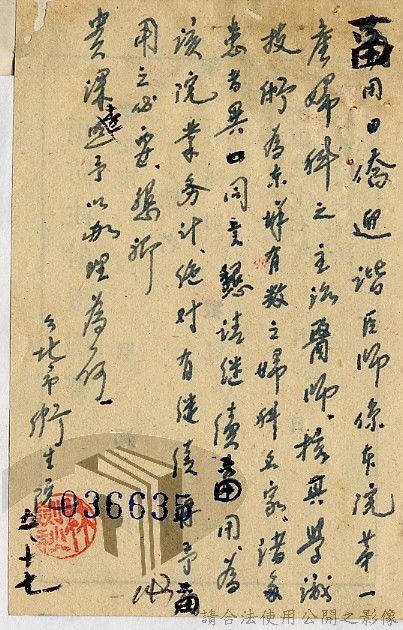 留用日僑迎諧臣師係本院第一
產婦科之主治醫師、按其學識
技術為東洋有數之婦科名家、諸多
患者異口同音懇請继續留用、為
該院業务計、絶对有继續再予留
用之必要、懇祈
貴課迅予以办理為荷
台北市衛生院 五、十七
036635
請合法使用公開之影像